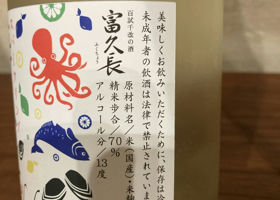 美味しくお飲みいただくために、保存は冷
未成年者の飲酒は法律で禁止されていま
百試千改の酒
富久長
ふくちょう
原材料名/米(国産)米麹
精米歩合/70%
アルコール分/13度